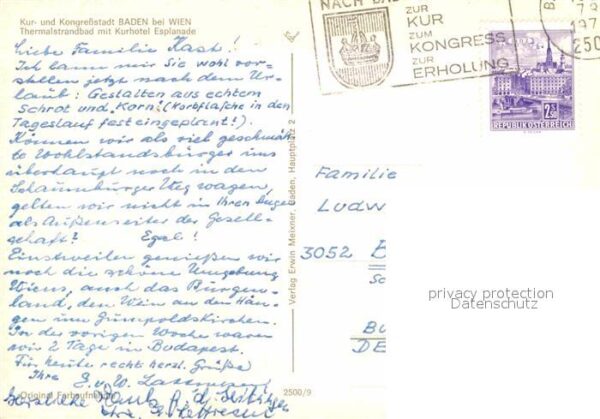 Kur- und Kongreßstadt BADEN bei WIEN
Thermalstrandbad mit Kurhotel Esplanade
Liebe Familie Kast!
Ich kann mir Sie wohl vor-
stellen jetzt nach dem Ur-
laub: Gestalten aus echtem
Schrot und Korn! (Korbflasche in den
Tageslauf fest eingeplant!).
Können wir als viel geschmäh-
te Wohlstandsbürger uns
überhaupt noch in den
Schaumburger Weg wagen,
gelten wir nicht in Ihren Augen
als Außenseiter der Gesell-
schaft? Egal!
Einstweilen genießen wir
noch die schöne Umgebung
Wiens, auch das Burgen-
land, den Wein an den Hän-
gen um Gumpoldskirchen.
In der vorigen Woche waren
wir 2 Tage in Budapest.
Für heute recht herzl. Grüße
Ihre
Original Farbaufnahme
2500/9
Verlag Erwin Meixner, Baden, Hauptplatz 2
NACH BA
ZUR
KUR
ZUM
KONGRESS
ZUR
ERHOLUNG
197
250
2.5
REPUBLIK ÖSTERREICH
Familie
Ludw
3052 B
DE
privacy protection
Datenschutz